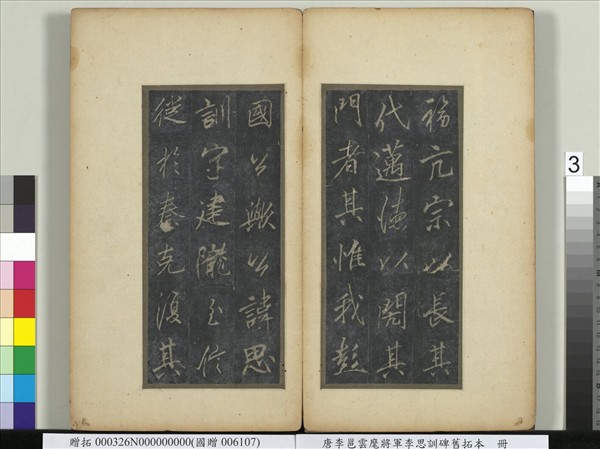 亢宗以長其
代邁德以閎其
門者其惟我彭
國公歟公諱思
訓字建隴至信
徙於秦克復其
3
贈拓 000326N000000000(國贈 006107)
唐李邕雲麾將軍李思訓碑舊拓本 冊